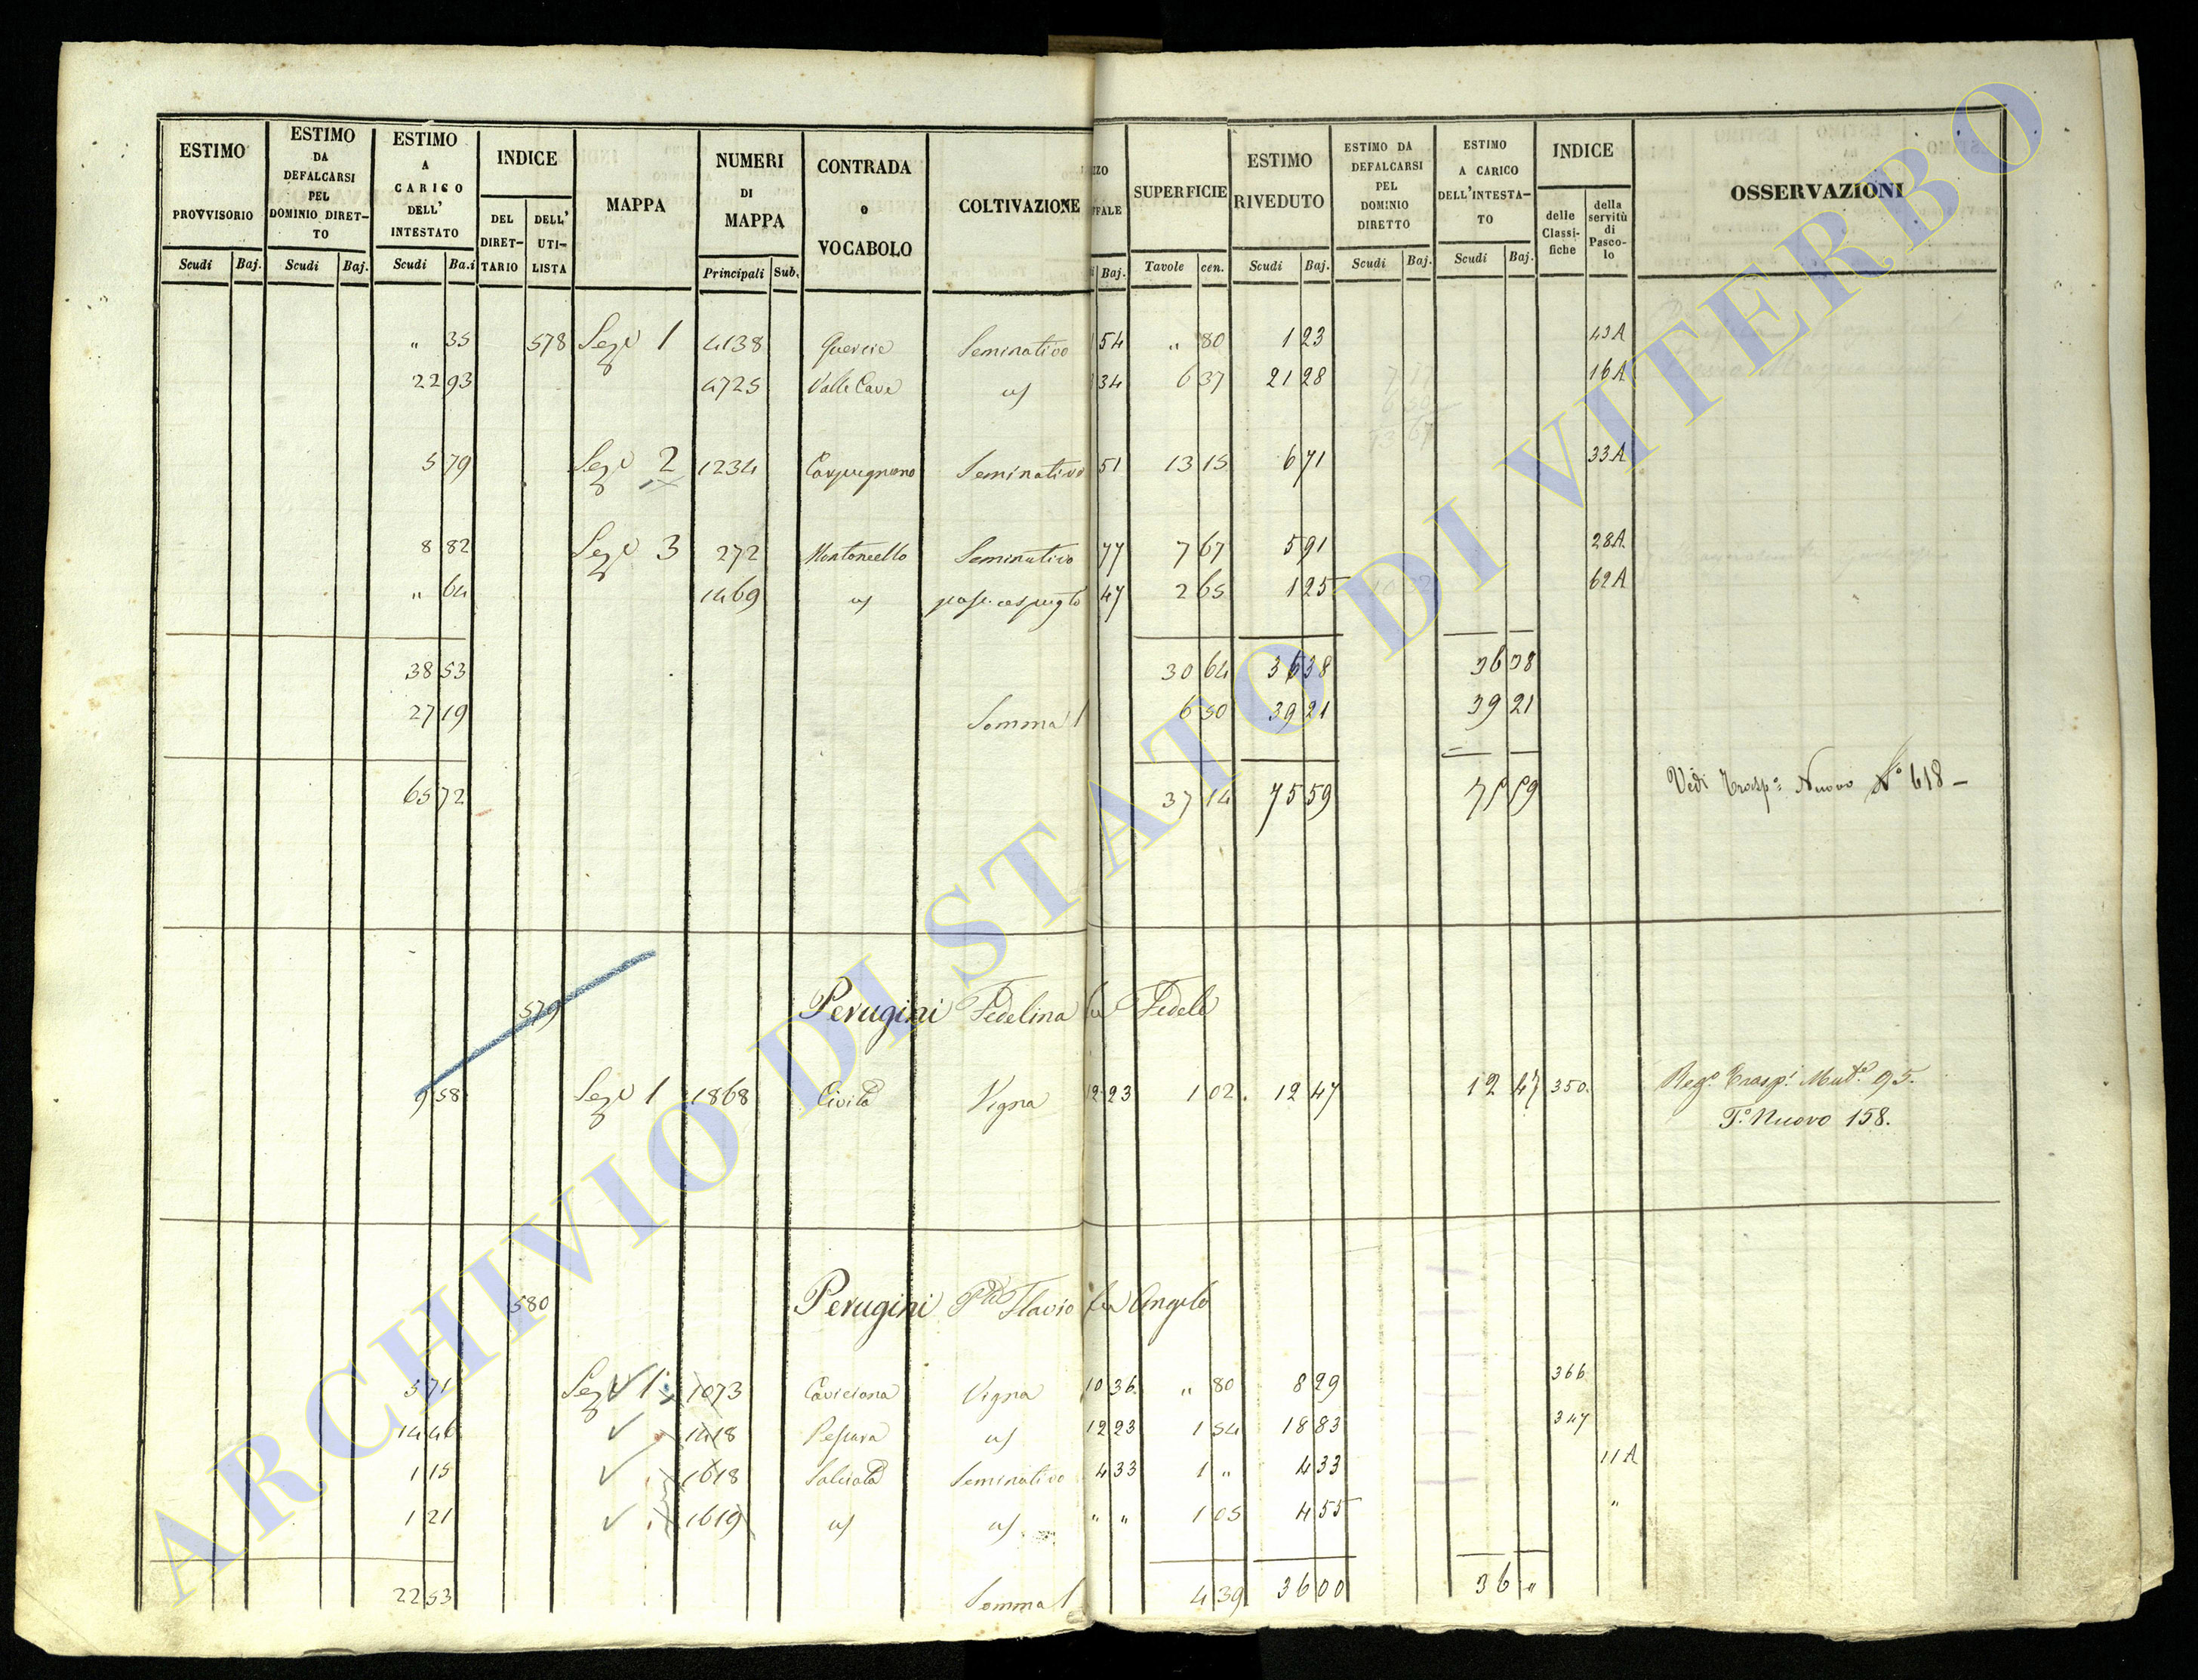 ESTIMO PROVVISORIO Scudi Baj.
ESTIMO DA DEFALCARSI PEL DOMINIO DIRET-TO Scudi Baj.
ESTIMO A CARICO DELL' INTESTATO Scudi Ba.i
INDICE DEL DIRET-TARIO DELL' UTI-LISTA
MAPPA
NUMERI DI MAPPA Principali Sub.
CONTRADA o VOCABOLO
COLTIVAZIONE
Baj.
SUPERFICIE Tavole cen.
ESTIMO RIVEDUTO Scudi Baj.
ESTIMO DA DEFALCARSI PEL DOMINIO DIRETTO Scudi Baj.
ESTIMO A CARICO DELL'INTESTA-TO Scudi Baj.
INDICE delle Classi-fiche della servitù di Pasco-lo
OSSERVAZIONI
" 35 578 Sez.e 1 4138 Quercie Seminativo 54 " 80 1 23 43A
22 93 4725 Valle Cave 34 6 37 21 28 16A
5 79 Sez.e 2 1234 Carpugnano Seminativo 51 13 15 6 71 33A
8 82 Sez.e 3 272 Montoncello Seminativo 77 7 67 5 91 28A
" 64 1469 47 2 65 1 25 62A
38 53 30 64 36 38 36 38
27 19 Somma 6 50 39 21 39 21
65 72 37 14 75 59 75 59 Vedi Trasp.o Nuovo N.o 618 -
579 Perugini Fedelina fu Fedele
9 58 Sez.e 1 1868 Civita Vigna 12 23 1 02 12 47 12 47 350. Reg.o Trasp.i Mut.e 95.
T.o Nuovo 158.
580 Perugini Flavio fu Angelo
5 71 Sez.e 1 1073 Caviciana Vigna 10 36 " 80 8 29 366
14 46 1418 12 23 1 54 18 83 347
1 15 1618 Salciata Seminativo 4 33 1 " 4 33 11A
1 21 1619 " " 1 05 4 55 "
22 53 Somma 4 39 36 00 36 "
ARCHIVIO DI STATO DI VITERBO